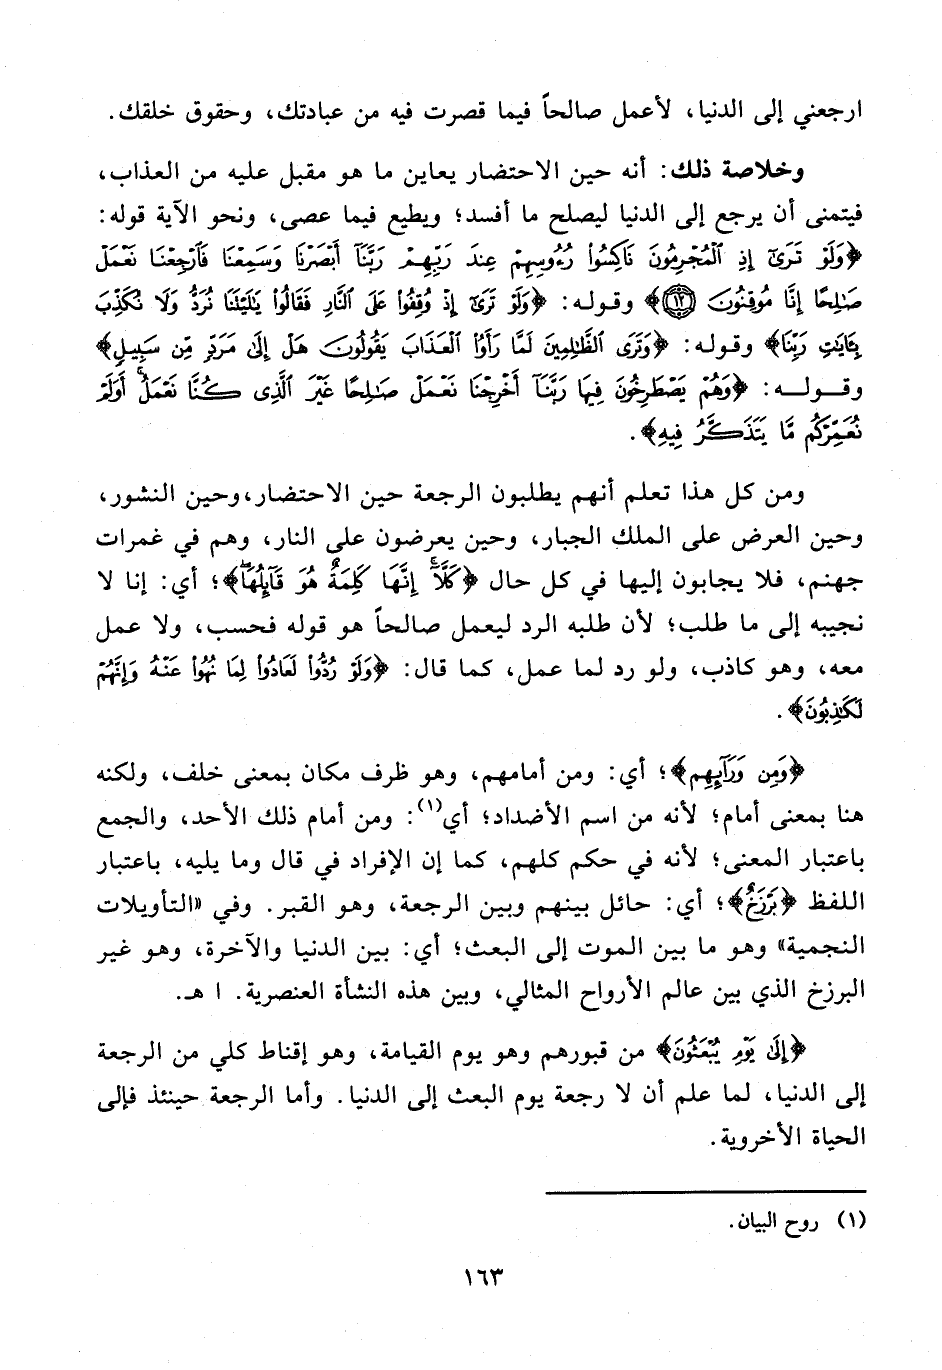 ارجعني إلى الدنيا، لأعمل صالحاً فيما قصرت فيه من عبادتك، وحقوق خلقك.
وخلاصة ذلك: أنه حين الاحتضار يعاين ما هو مقبل عليه من العذاب،
فيتمنى أن يرجع إلى الدنيا ليصلح ما أفسد؛ ويطيع فيما عصى، ونحو الآية قوله:
﴿وَلَوْ تَرَىٰٓ إِذِ ٱلْمُجْرِمُونَ نَاكِسُوا۟ رُءُوسِهِمْ عِندَ رَبِّهِمْ رَبَّنَآ أَبْصَرْنَا وَسَمِعْنَا فَٱرْجِعْنَا نَعْمَلْ
صَٰلِحًا إِنَّا مُوقِنُونَ ⁧١٢﴾ وقوله: ﴿وَلَوْ تَرَىٰٓ إِذْ وُقِفُوا۟ عَلَى ٱلنَّارِ فَقَالُوا۟ يَٰلَيْتَنَا نُرَدُّ وَلَا نُكَذِّبَ
بِـَٔايَٰتِ رَبِّنَا﴾ وقوله: ﴿وَتَرَى ٱلظَّٰلِمِينَ لَمَّا رَأَوُا۟ ٱلْعَذَابَ يَقُولُونَ هَلْ إِلَىٰ مَرَدٍّ مِّن سَبِيلٍ﴾
وقوله: ﴿وَهُمْ يَصْطَرِخُونَ فِيهَا رَبَّنَآ أَخْرِجْنَا نَعْمَلْ صَٰلِحًا غَيْرَ ٱلَّذِى كُنَّا نَعْمَلُ ۚ أَوَلَمْ
نُعَمِّرْكُم مَّا يَتَذَكَّرُ فِيهِ﴾.
ومن كل هذا تعلم أنهم يطلبون الرجعة حين الاحتضار، وحين النشور،
وحين العرض على الملك الجبار، وحين يعرضون على النار، وهم في غمرات
جهنم، فلا يجابون إليها في كل حال ﴿كَلَّآ ۚ إِنَّهَا كَلِمَةٌ هُوَ قَآئِلُهَا ۖ﴾؛ أي: إنا لا
نجيبه إلى ما طلب؛ لأن طلبه الرد ليعمل صالحاً هو قوله فحسب، ولا عمل
معه، وهو كاذب، ولو رد لما عمل، كما قال: ﴿وَلَوْ رُدُّوا۟ لَعَادُوا۟ لِمَا نُهُوا۟ عَنْهُ وَإِنَّهُمْ
لَكَٰذِبُونَ﴾.
﴿وَمِن وَرَآئِهِم﴾؛ أي: ومن أمامهم، وهو ظرف مكان بمعنى خلف، ولكنه
هنا بمعنى أمام؛ لأنه من اسم الأضداد؛ أي(١): ومن أمام ذلك الأحد، والجمع
باعتبار المعنى؛ لأنه في حكم كلهم، كما إن الإفراد في قال وما يليه، باعتبار
اللفظ ﴿بَرْزَخٌ﴾؛ أي: حائل بينهم وبين الرجعة، وهو القبر. وفي «التأويلات
النجمية» وهو ما بين الموت إلى البعث؛ أي: بين الدنيا والآخرة، وهو غير
البرزخ الذي بين عالم الأرواح المثالي، وبين هذه النشأة العنصرية. ا هـ.
﴿إِلَىٰ يَوْمِ يُبْعَثُونَ﴾ من قبورهم وهو يوم القيامة، وهو إقناط كلي من الرجعة
إلى الدنيا، لما علم أن لا رجعة يوم البعث إلى الدنيا. وأما الرجعة حينئذ فإلى
الحياة الأخروية.
(١) روح البيان.
١٦٣